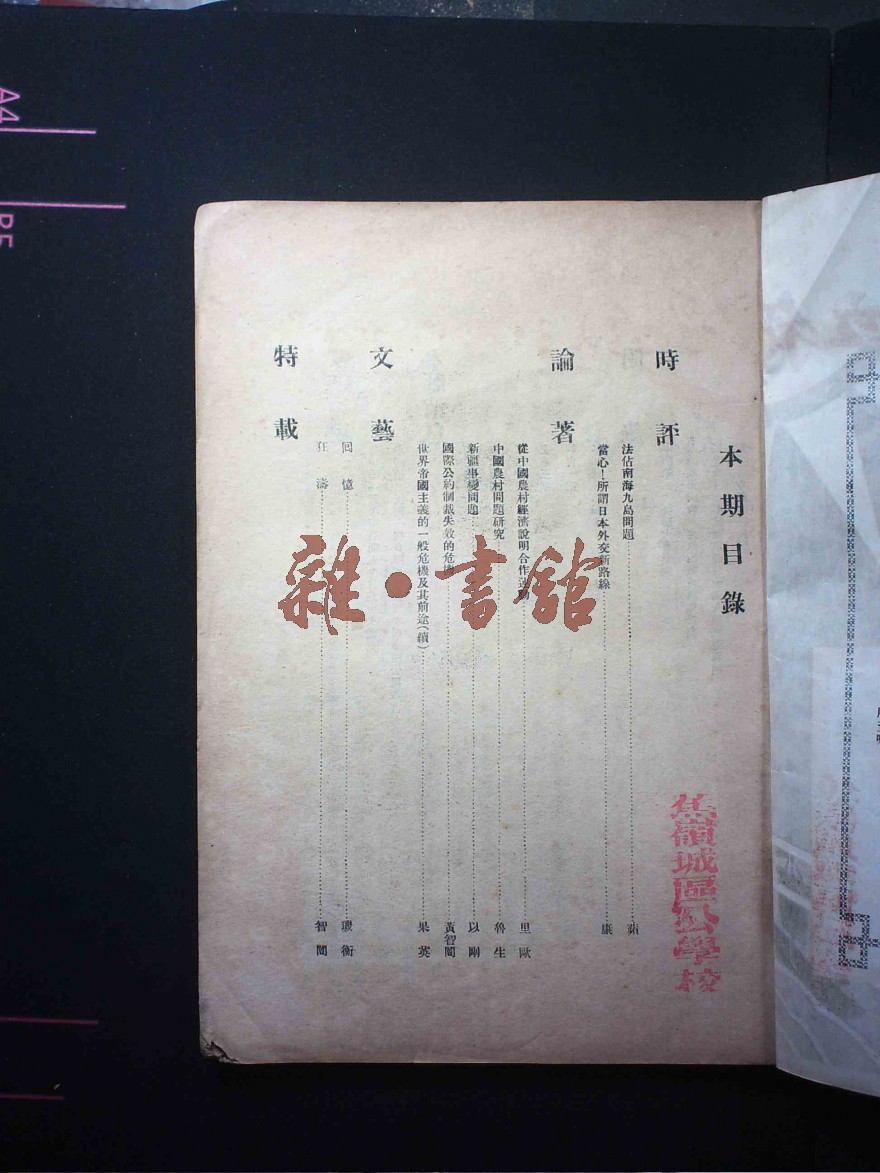 本期目錄
時評
法佔南海九島問題 蘋
當心！所謂日本外交新路線 康
論著
從中國農村經濟說明合作運動 里歐
中國農村問題研究 魯生
新疆事變問題 以剛
國際公約制裁失效的危機 黃智閣
世界帝國主義的一般危機及其前途（續） 果英
文藝
回憶 衡
狂濤 智閣
特載
蕉嶺城區公學校
雜·書館
A4
B5